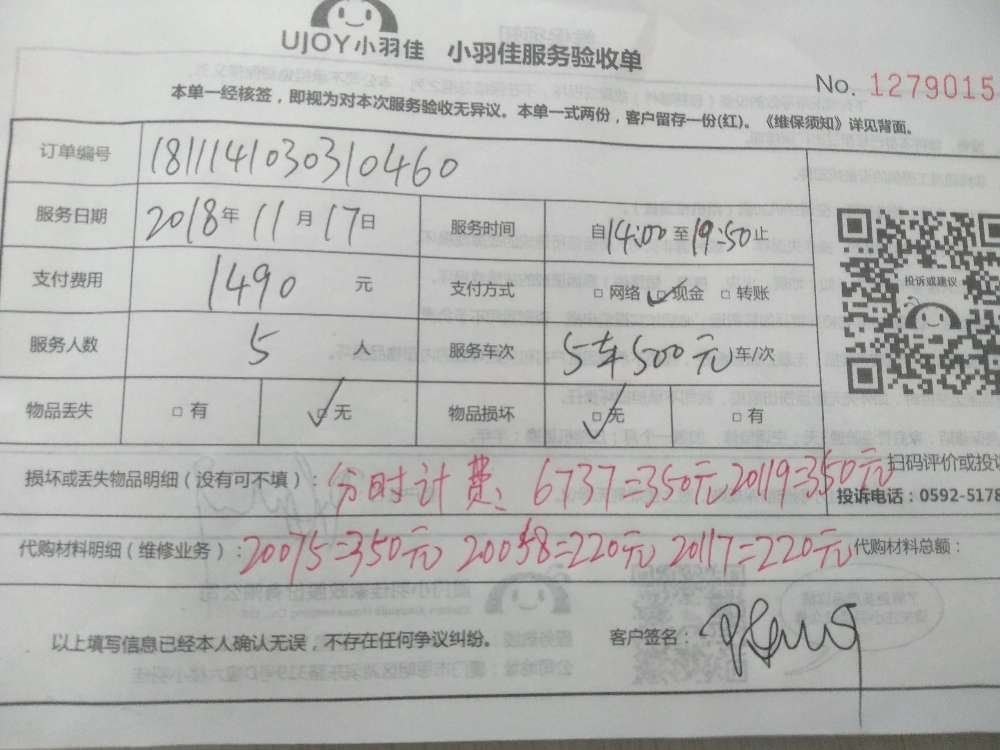 UJOY小羽佳 小羽佳服务验收单
No. 1279015
本单一经核签，即视为对本次服务验收无异议。本单一式两份，客户留存一份(红)。《维保须知》详见背面。
订单编号 1811141030310460
服务日期 2018年 11 月 17日 服务时间 自14:00至19:50止
支付费用 1490 元 支付方式 □ 网络 □ 现金 □ 转账
投诉或建议
服务人数 5 人 服务车次 5车500元 车/次
物品丢失 □ 有 □ 无 物品损坏 □ 无 □ 有
损坏或丢失物品明细（没有可不填）：分时计费：6737=350元 20119=350元
扫码评价或投诉
投诉电话：0592-5178
代购材料明细（维修业务）：20075=350元 20058=220元 20117=220元 代购材料总额：
以上填写信息已经本人确认无误，不存在任何争议纠纷。 客户签名：